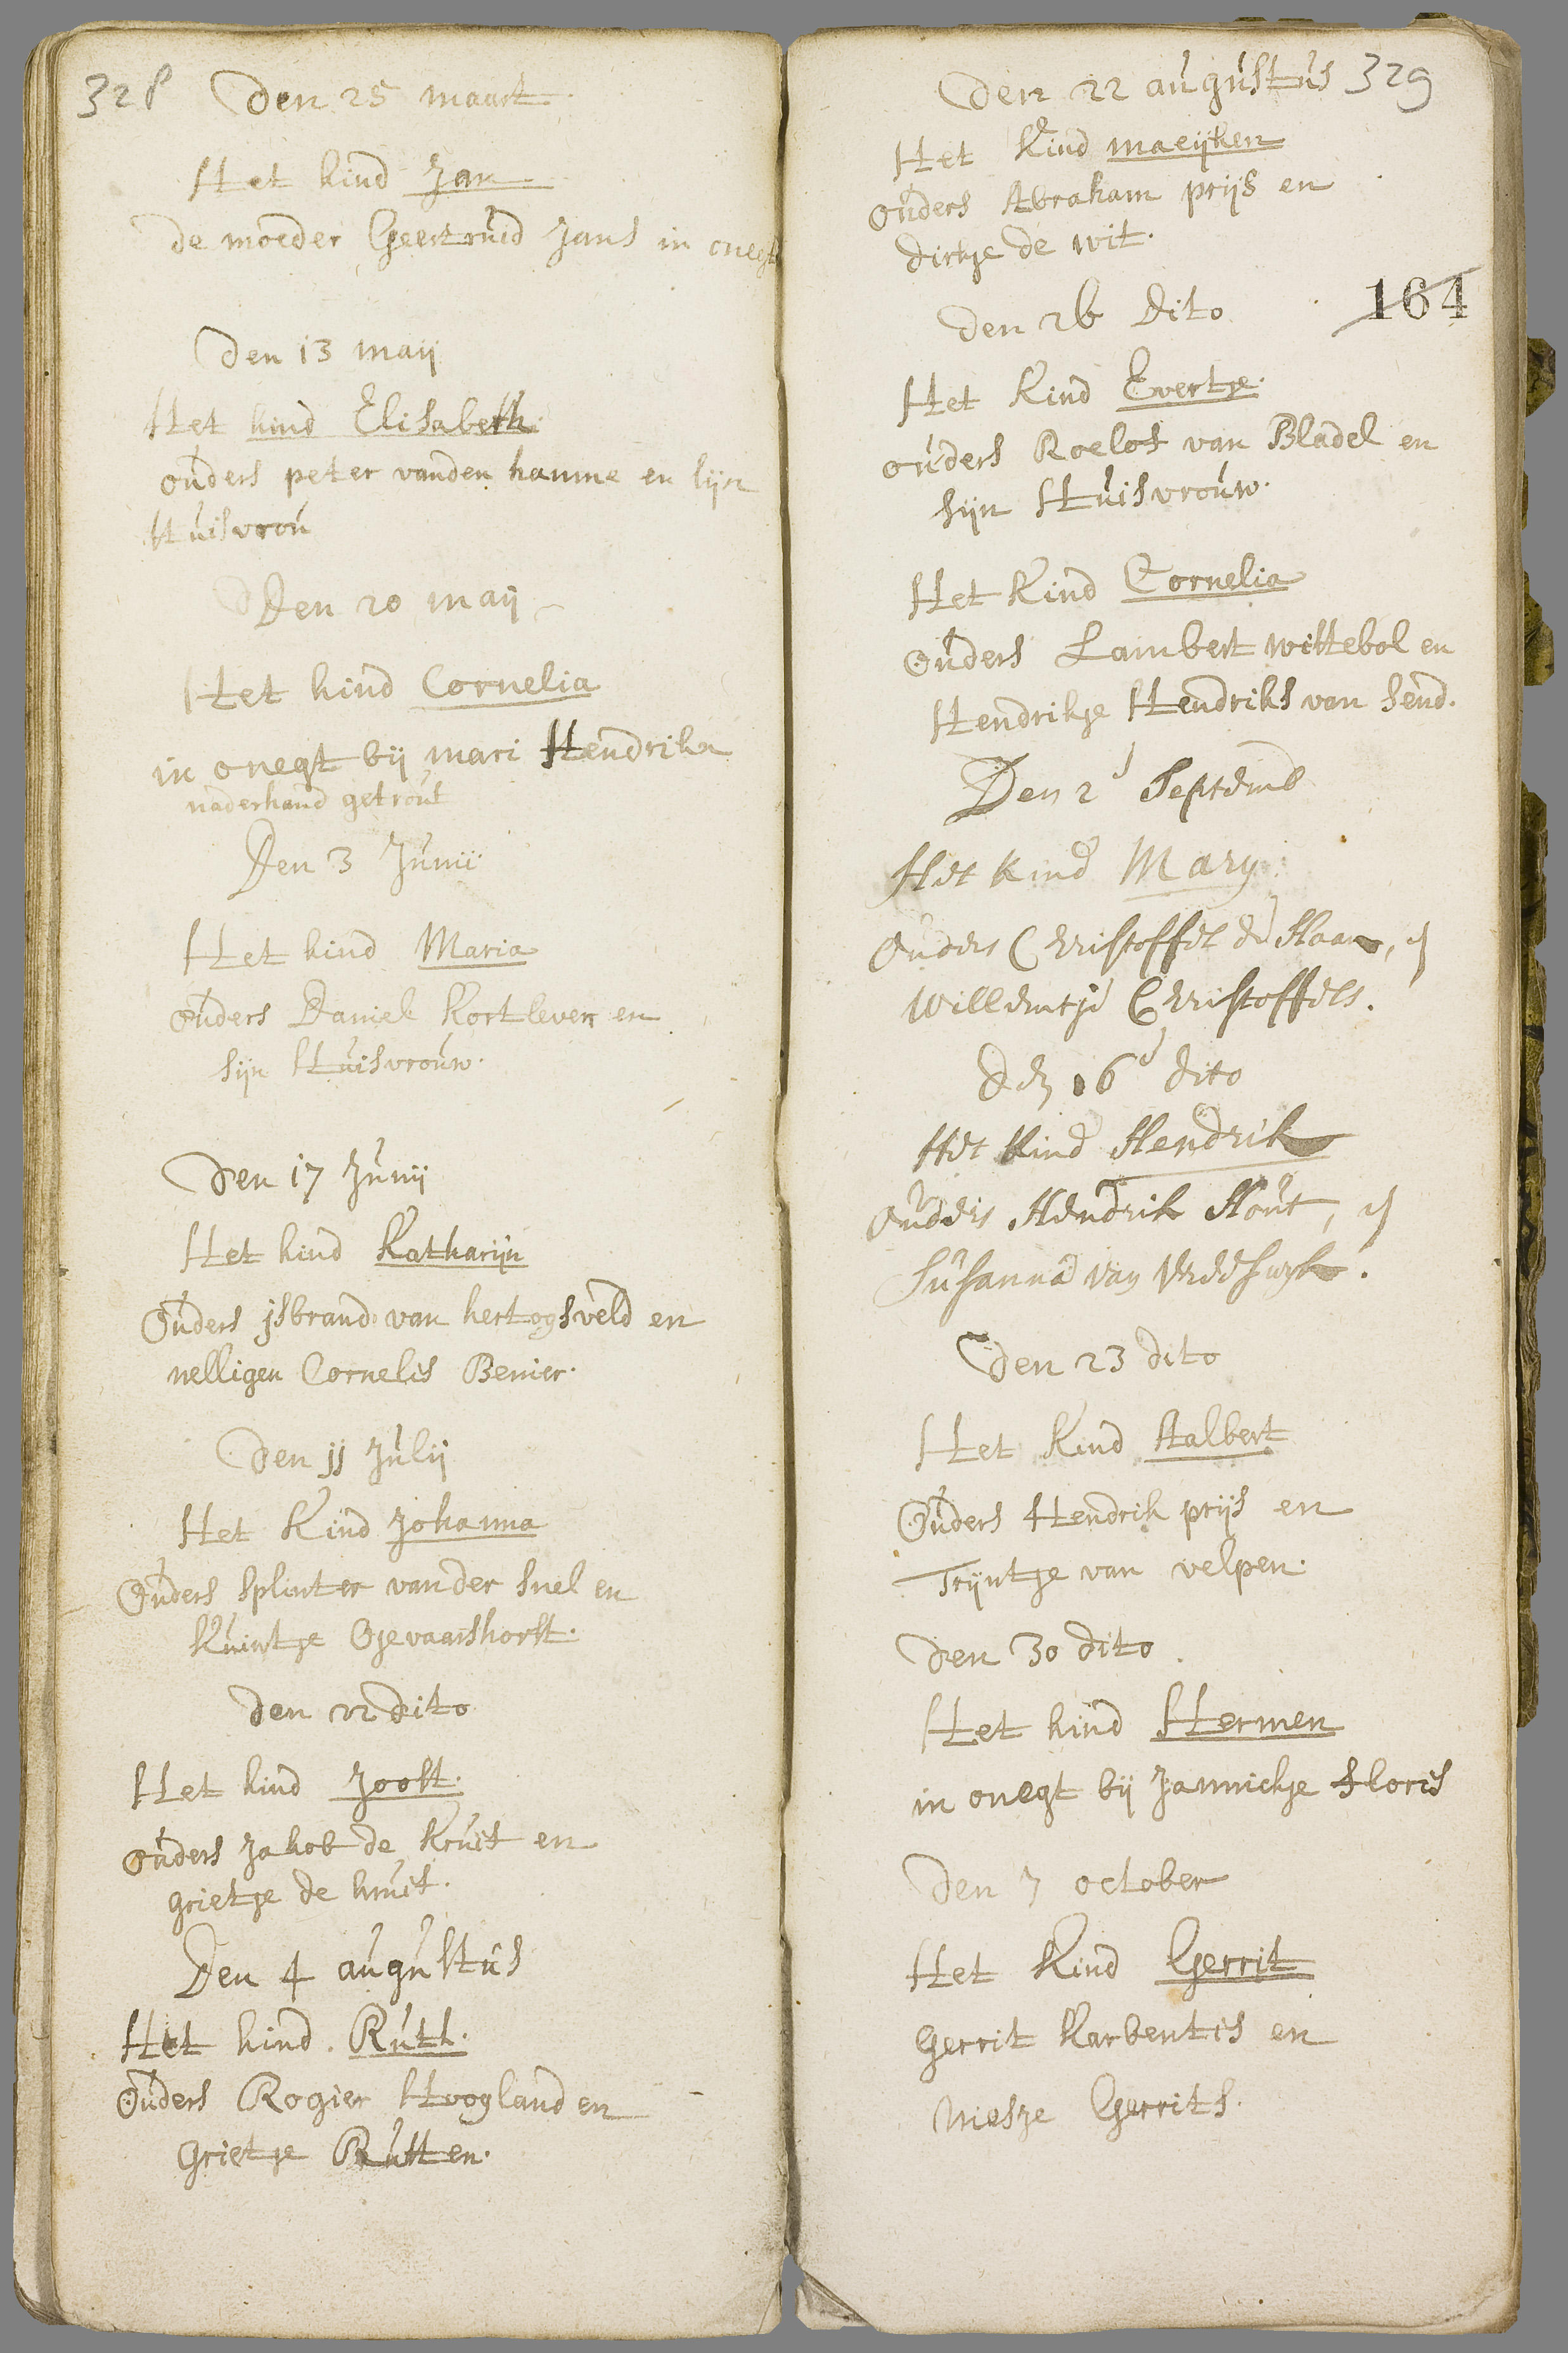 328
Den 25 maart
Het kind Jan
de moeder Geertruid Jans in onegt
Den 13 maij
Het kind Elisabeth.
ouders peter vanden hamme en sijn
Huisvrou
Den 20 maij
Het kind Cornelia
in onegt bij mari Hendriks
naderhand getrout
Den 3 Junii
Het kind Maria
ouders Daniel Kortleven en
sijn Huisvrouw.
Den 17 Junij
Het kind Katharijn
Ouders jsbrand van hertogsveld en
nelligen Cornelis Benier.
Den jj Julij
Het Kind Johanna
Ouders Splinter vander Snel en
Kuintge Gevaarshorst.
Den 22 dito
Het kind Joost.
ouders Jakob de Kruit en
grietge de kruit.
Den 4 augustus
Het kind. Rutt.
Ouders Rogier Hoogland en
Grietge Rutten.
329
Den 22 augustus
Het Kind maeijken
ouders Abraham prijs en
dirkge de wit.
164
Den 26 Dito
Het Kind Evertge.
ouders Roelof van Bladel en
sijn Huisvrouw.
Het Kind Cornelia
Ouders Lambert wittebol en
Hendrikge Hendriks van Send.
Den 2e Septemb
Het kind Mary.
Ouders Christoffel de Haan, en
Willemtje Christoffels.
Den 16e dito
Het Kind Hendrik
Ouders Hendrik Hout, en
Susanna van Vreeswyk.
Den 23 dito
Het Kind Aalbert
Ouders Hendrik prijs en
Trijntge van velpen.
Den 30 dito
Het kind Hermen
in onegt bij Jannickge Floris
Den 7 october
Het Kind Gerrit
Gerrit Karbentis en
Niesje Gerrits.